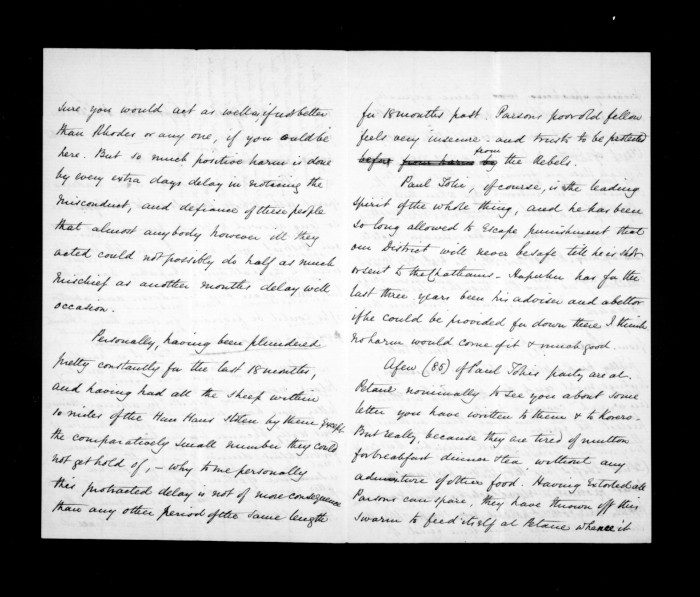 sure you would act as well as if not better
than Rhodes or any one, if you could be
here. But so much positive harm is done
by every extra days delay in noticing the
misconduct, and defiance of these people
that almost anybody however ill they
acted could not possibly do half as much
mischief as another months delay will
occasion.
Personally, having been plundered
pretty constantly for the last 18 months,
and having had all the sheep within
10 miles of the Hau Haus stolen by them except
the comparatively small number they could
not get hold of, – why to me personally
this protracted delay is not of more consequence
than any other period of the same length
for 18 months past. Parsons poor old fellow
feels very insecure. and trusts to be protected
before from harm by from the Rebels.
Paul Toki, of course, is the leading
spirit of the whole thing, and he has been
so long allowed to escape punishment that
our District will never be safe till he is shot
or sent to the Chathams – Hapuku has for the
last three years been his adviser and abettor
if he could be provided for down there I think
no harm would come of it & much good.
A few (35) of Paul Tokis party are at
Petane nominally to see you about some
letter you have written to them & to
But really, because they are tired of mutton
for breakfast dinner & tea without any
admixture of other food. Having extorted all
Parsons can spare, they have thrown off this
swarm to feed itself at Petane whence it